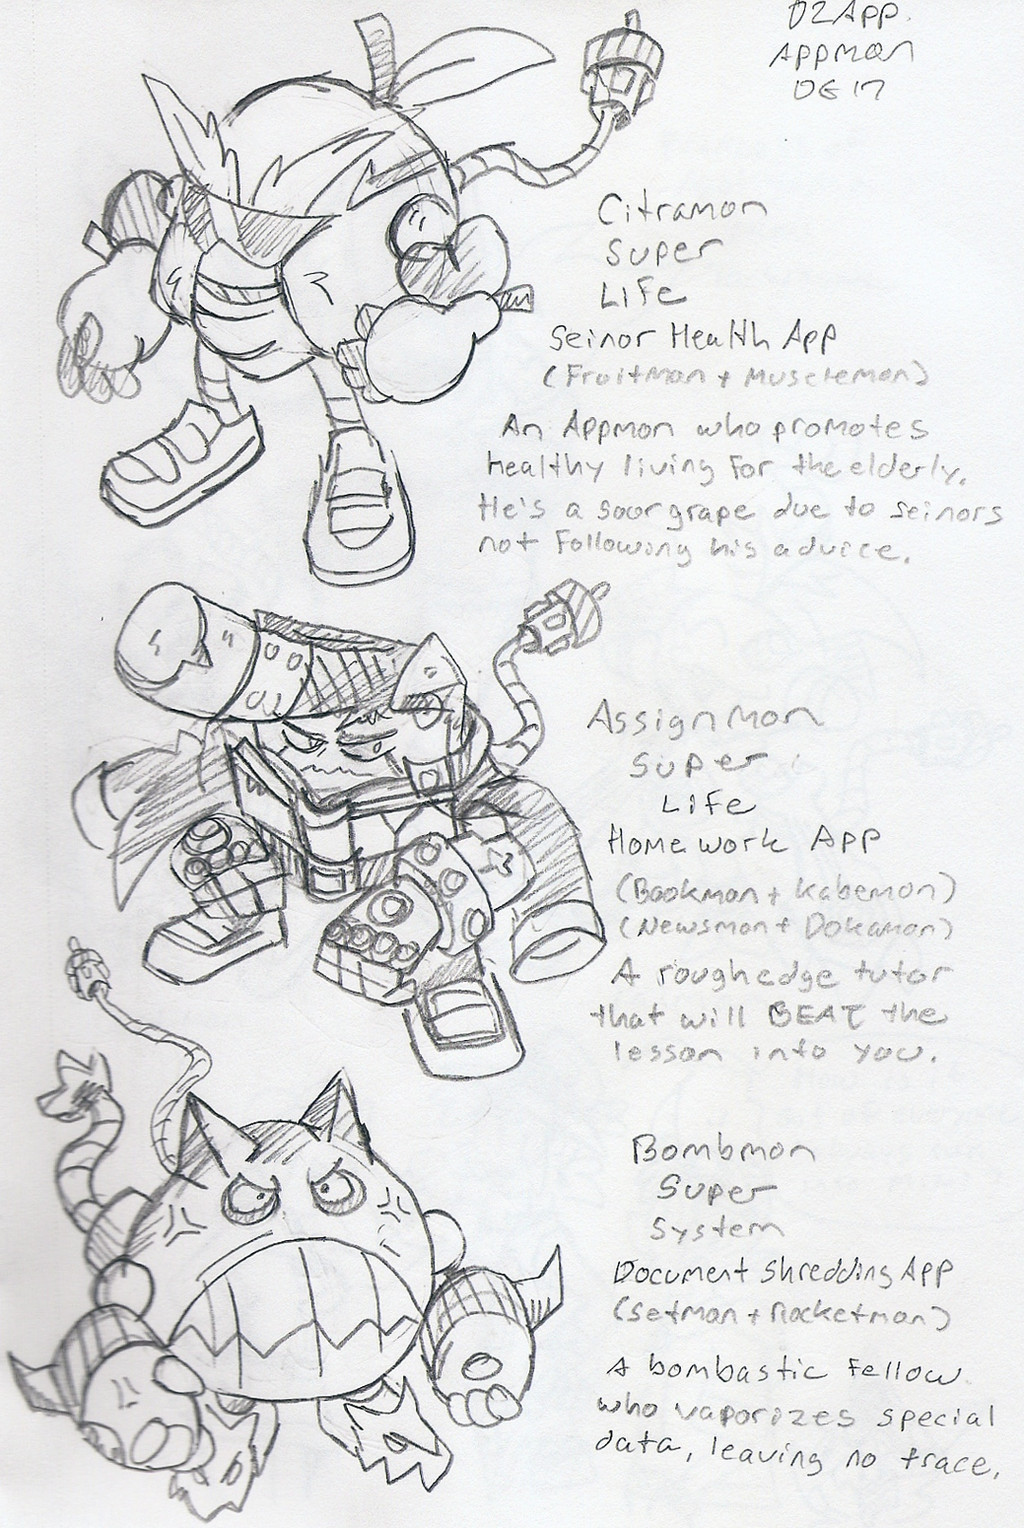 DZApp.
Appmon
OG 17
Citramon
Super
Life
Seinor Health App
(Fruitmon + Musclemon)
An Appmon who promotes
Healthy living For the elderly.
He's a sour grape due to seinors
not Following his advice.
Assignmon
Super
Life
Homework App
(Bookmon + Kabemon)
(Newsmon + Dokamon)
A rough edge tutor
that will BEAT the
lesson into you.
Bombmon
Super
System
Document Shredding App
(Setmon + Rocketmon)
A bombastic Fellow
who vaporizes special
data, leaving no trace.